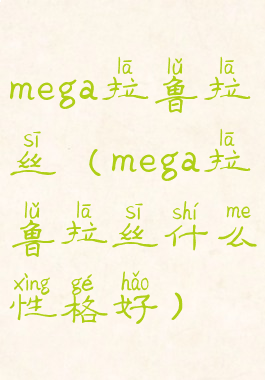 lā lǔ lā
mega拉鲁拉
sī lā
丝（mega拉
lǔ lā sī shí me
鲁拉丝什么
xìng gé hǎo
性格好）